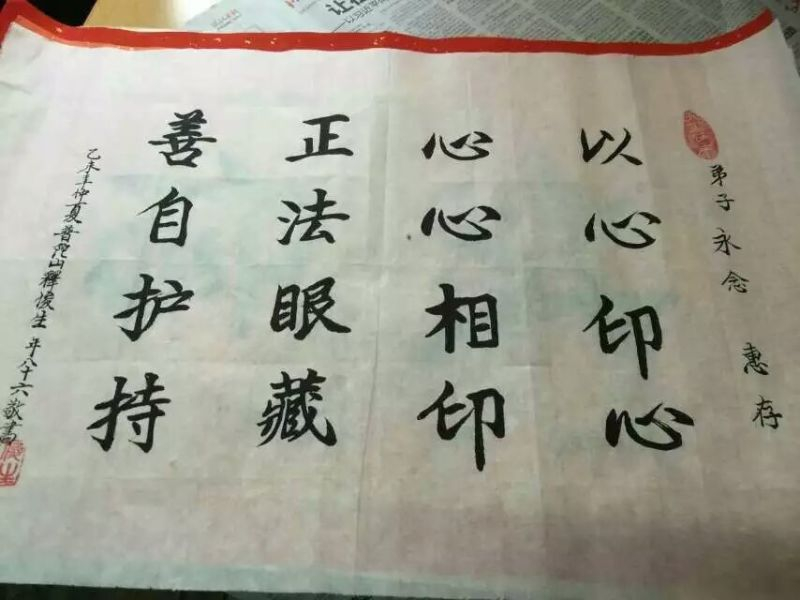 弟子永念 惠存
以心印心
心心相印
正法眼藏
善自护持
乙未年仲夏普陀山释俊生年八十六敬書